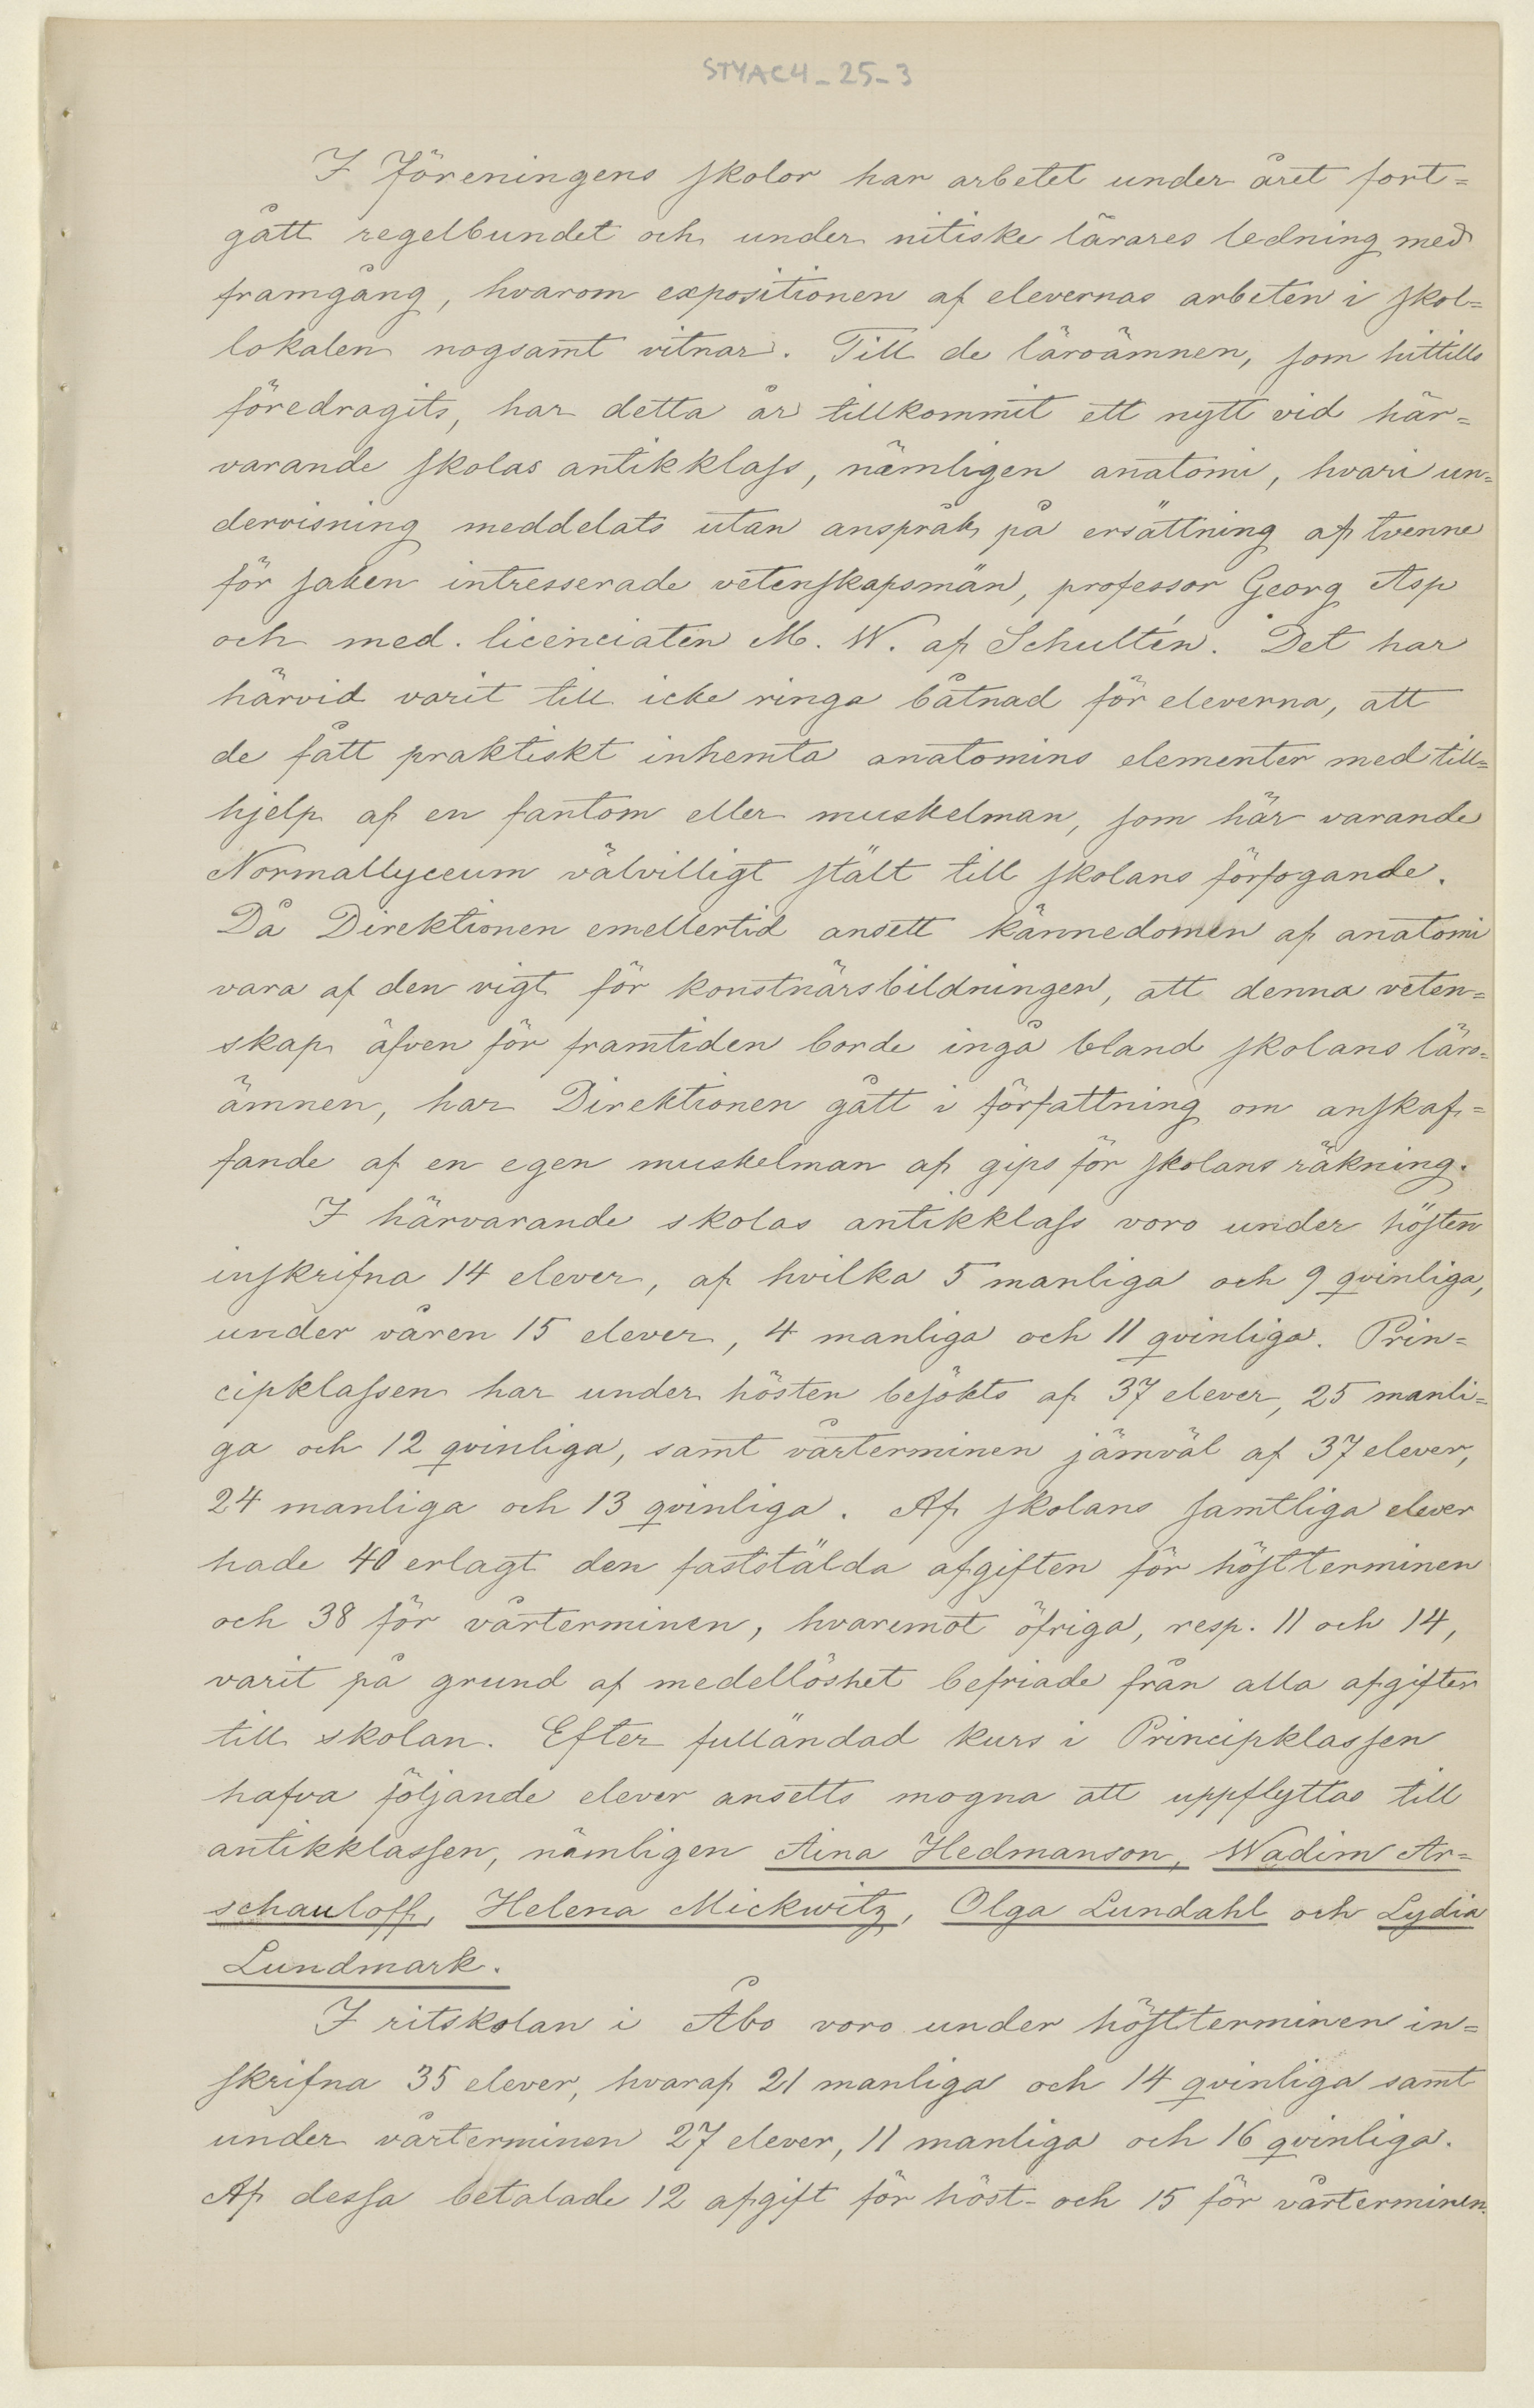 STYAC4_25_3
I Föreningens skolor har arbetet under året fort=
gått regelbundet och under nitiske lärares ledning med
framgång, hvarom expositionen af elevernas arbeten i skol=
lokalen nogsamt vitnar. Till de läroämnen, som hittills
föredragits, har detta år tillkommit ett nytt vid här=
varande skolas antikklass, nämligen anatomi, hvari un=
dervisning meddelats utan anspråk på ersättning af tvenne
för saken intresserade vetenskapsmän, professor Georg Asp
och med. licenciaten M. W. af Schultén. Det har
härvid varit till icke ringa båtnad för eleverna, att
de fått praktiskt inhemta anatomins elementer med till=
hjelp af en fantom eller muskelman, som här varande
Normallyceum välvilligt stält till skolans förfogande.
Då Direktionen emellertid ansett kännedomen af anatomi
vara af den vigt för konstnärsbildningen, att denna veten=
skap äfven för framtiden borde ingå bland skolans läro=
ämnen, har Direktionen gått i författning om anskaf=
fande af en egen muskelman af gips för skolans räkning.
I härvarande skolas antikklass voro under hösten
inskrifna 14 elever, af hvilka 5 manliga och 9 qvinliga,
under våren 15 elever, 4 manliga och 11 qvinliga. Prin=
cipklassen har under hösten besökts af 37 elever, 25 manli=
ga och 12 qvinliga, samt vårterminen jämväl af 37 elever,
24 manliga och 13 qvinliga. Af skolans samtliga elever
hade 40 erlagt den faststälda afgiften för höstterminen
och 38 för vårterminen, hvaremot öfriga, resp. 11 och 14,
varit på grund af medellöshet befriade från alla afgifter
till skolan. Efter fulländad kurs i Principklassen
hafva följande elever ansetts mogna att uppflyttas till
antikklassen, nämligen Aina Hedmanson, Wadim Ar=
schauloff, Helena Mickwitz, Olga Lundahl och Lydia
Lundmark.
I ritskolan i Åbo voro under höstterminen in=
skrifna 35 elever, hvaraf 21 manliga och 14 qvinliga samt
under vårterminen 27 elever, 11 manliga och 16 qvinliga.
Af dessa betalade 12 afgift för höst- och 15 för vårterminen.